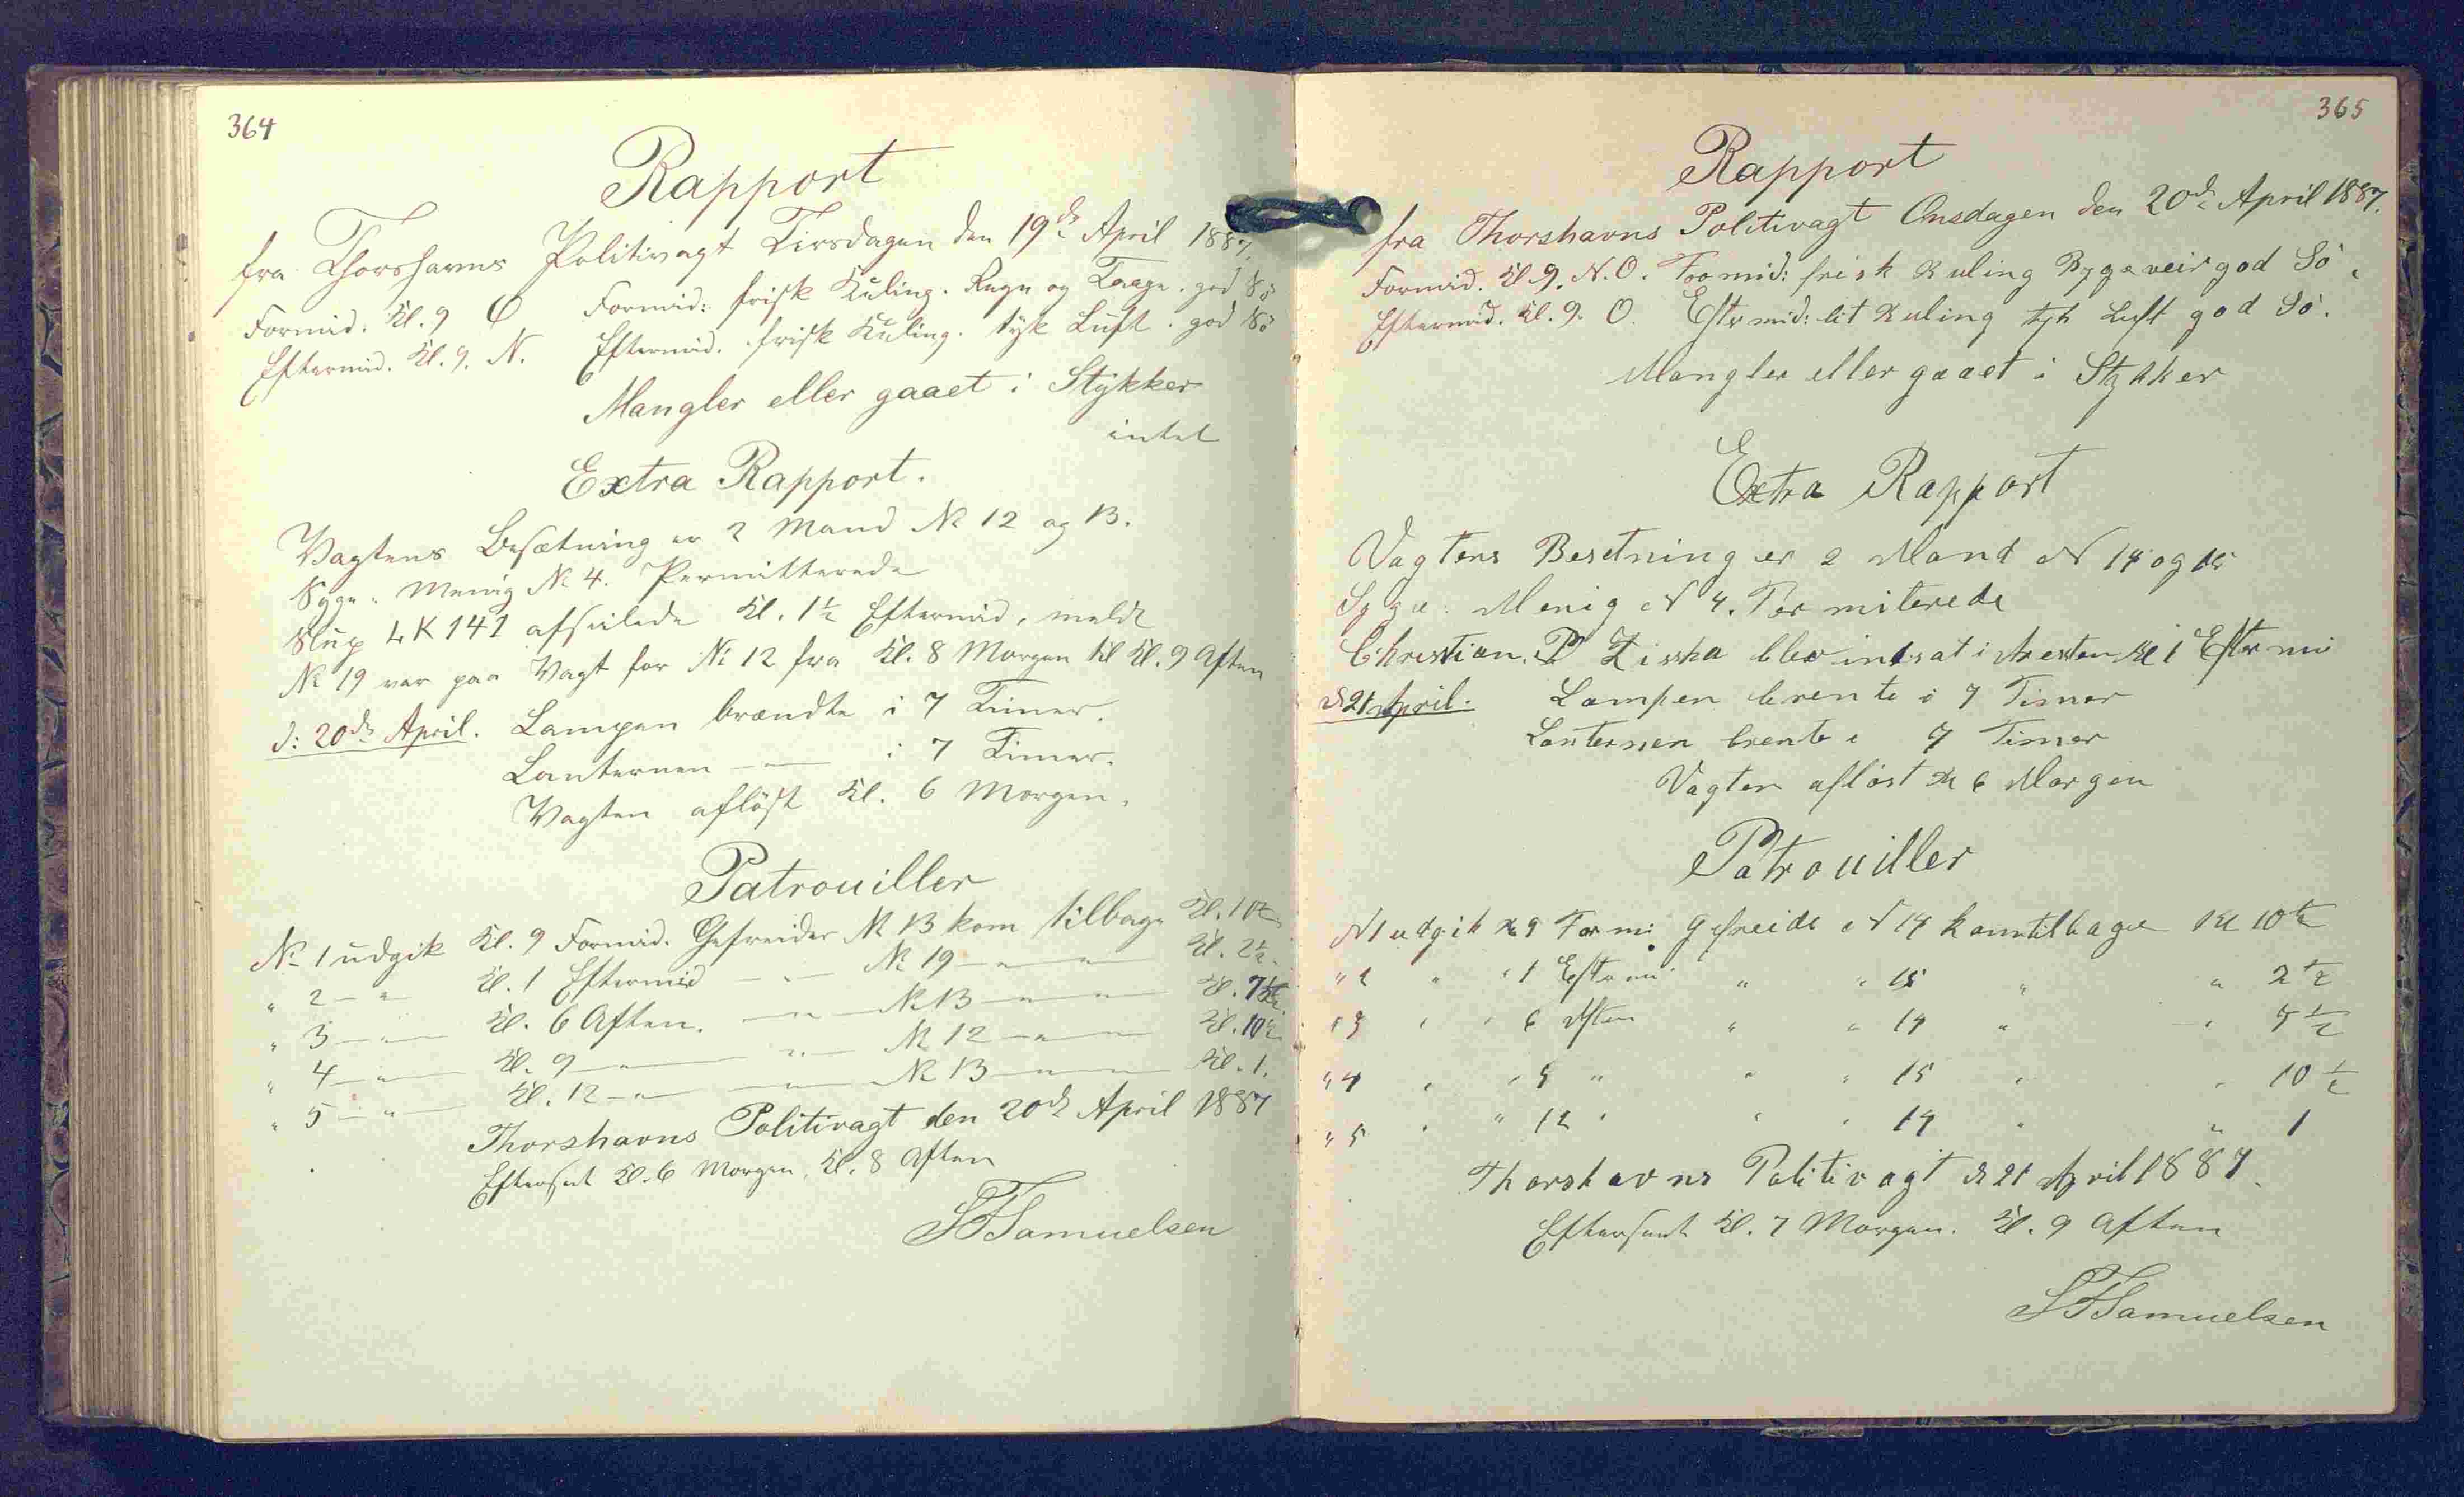 364
Rapport
fra Thorshavns Politivagt Tirsdagen den 19de April 1887.
Formid. Kl. 9 O Formid: frisk Kuling. Regn og Taage. god Sö
Eftermid. Kl. 9. N. Eftermid. frisk Kuling. tyk Luft. god Sö
Mangler eller gaaet i Stykker
intet
Extra Rapport.
Vagtens Besætning er 2 Mand № 12 og 13.
Syge: Menig № 4. Permitterede
Slup LK 141 afseilede Kl. 1½ Eftermid,
№ 19 var paa Vagt for № 12 fra Kl. 8 Morgen til Kl. 9 Aften
d: 20de April. Lampen brændte i 7 Timer.
Lanternen — " — i 7 Timer.
Vagten aflöst Kl. 6 Morgen.
Patrouiller
№ 1 udgik Kl. 9 Formid. Gefreider № 13 kom tilbage Kl. 10½
" 2 — " Kl. 1 Eftermid — " — № 19 — " — " — Kl. 2½.
" 3 — " — Kl. 6 Aften. — " — № 13 — " — " — Kl. 7½.
" 4 — " — Kl. 9 — " — — " — № 12 — " — " — Kl. 10½
" 5 — " — Kl. 12 — " — — " — № 13 — " — " — Kl. 1.
Thorshavns Politivagt den 20de April 1887
Efterseet Kl. 6 Morgen, Kl. 8 Aften
SFSamuelsen
365
Rapport
fra Thorshavns Politivagt Onsdagen den 20de April 1887.
Formid. Kl. 9. N.O. Fromid: frisk Kuling Bygeveir god Sö
Eftermid. Kl. 9. O. Eftrmid: lit Kuling tyk Luft god Sö.
Mangler eller gaaet i Stykker
Extra Rapport
Vagtens Besetning er 2 Mand N 14 og 15
Syge: Menig N 4. Permiterede
Christian. P Ziska blev indsat i Aresten Kl 1 Eftrmi
d 21 April. Lampen brente i 7 Timer
Lanternen brente i 7 Timer
Vagten aflöst Kl 6 Morgen
Patrouiller
N 1 udgik Kl 9 Formi Gefreide N 14 kom tilbage Kl 10½
" 2 " " 1 Eftrmi " " 15 " " 2½
" 3 " " 6 Aften " " 14 " " 7½
" 4 " " 9 " " " 15 " " 10½
" 5 " " 12 " " " 14 " " 1
Thorshavns Politivagt d 21 April 1887.
Efterseet Kl. 7 Morgen. Kl. 9 Aften
SFSamuelsen